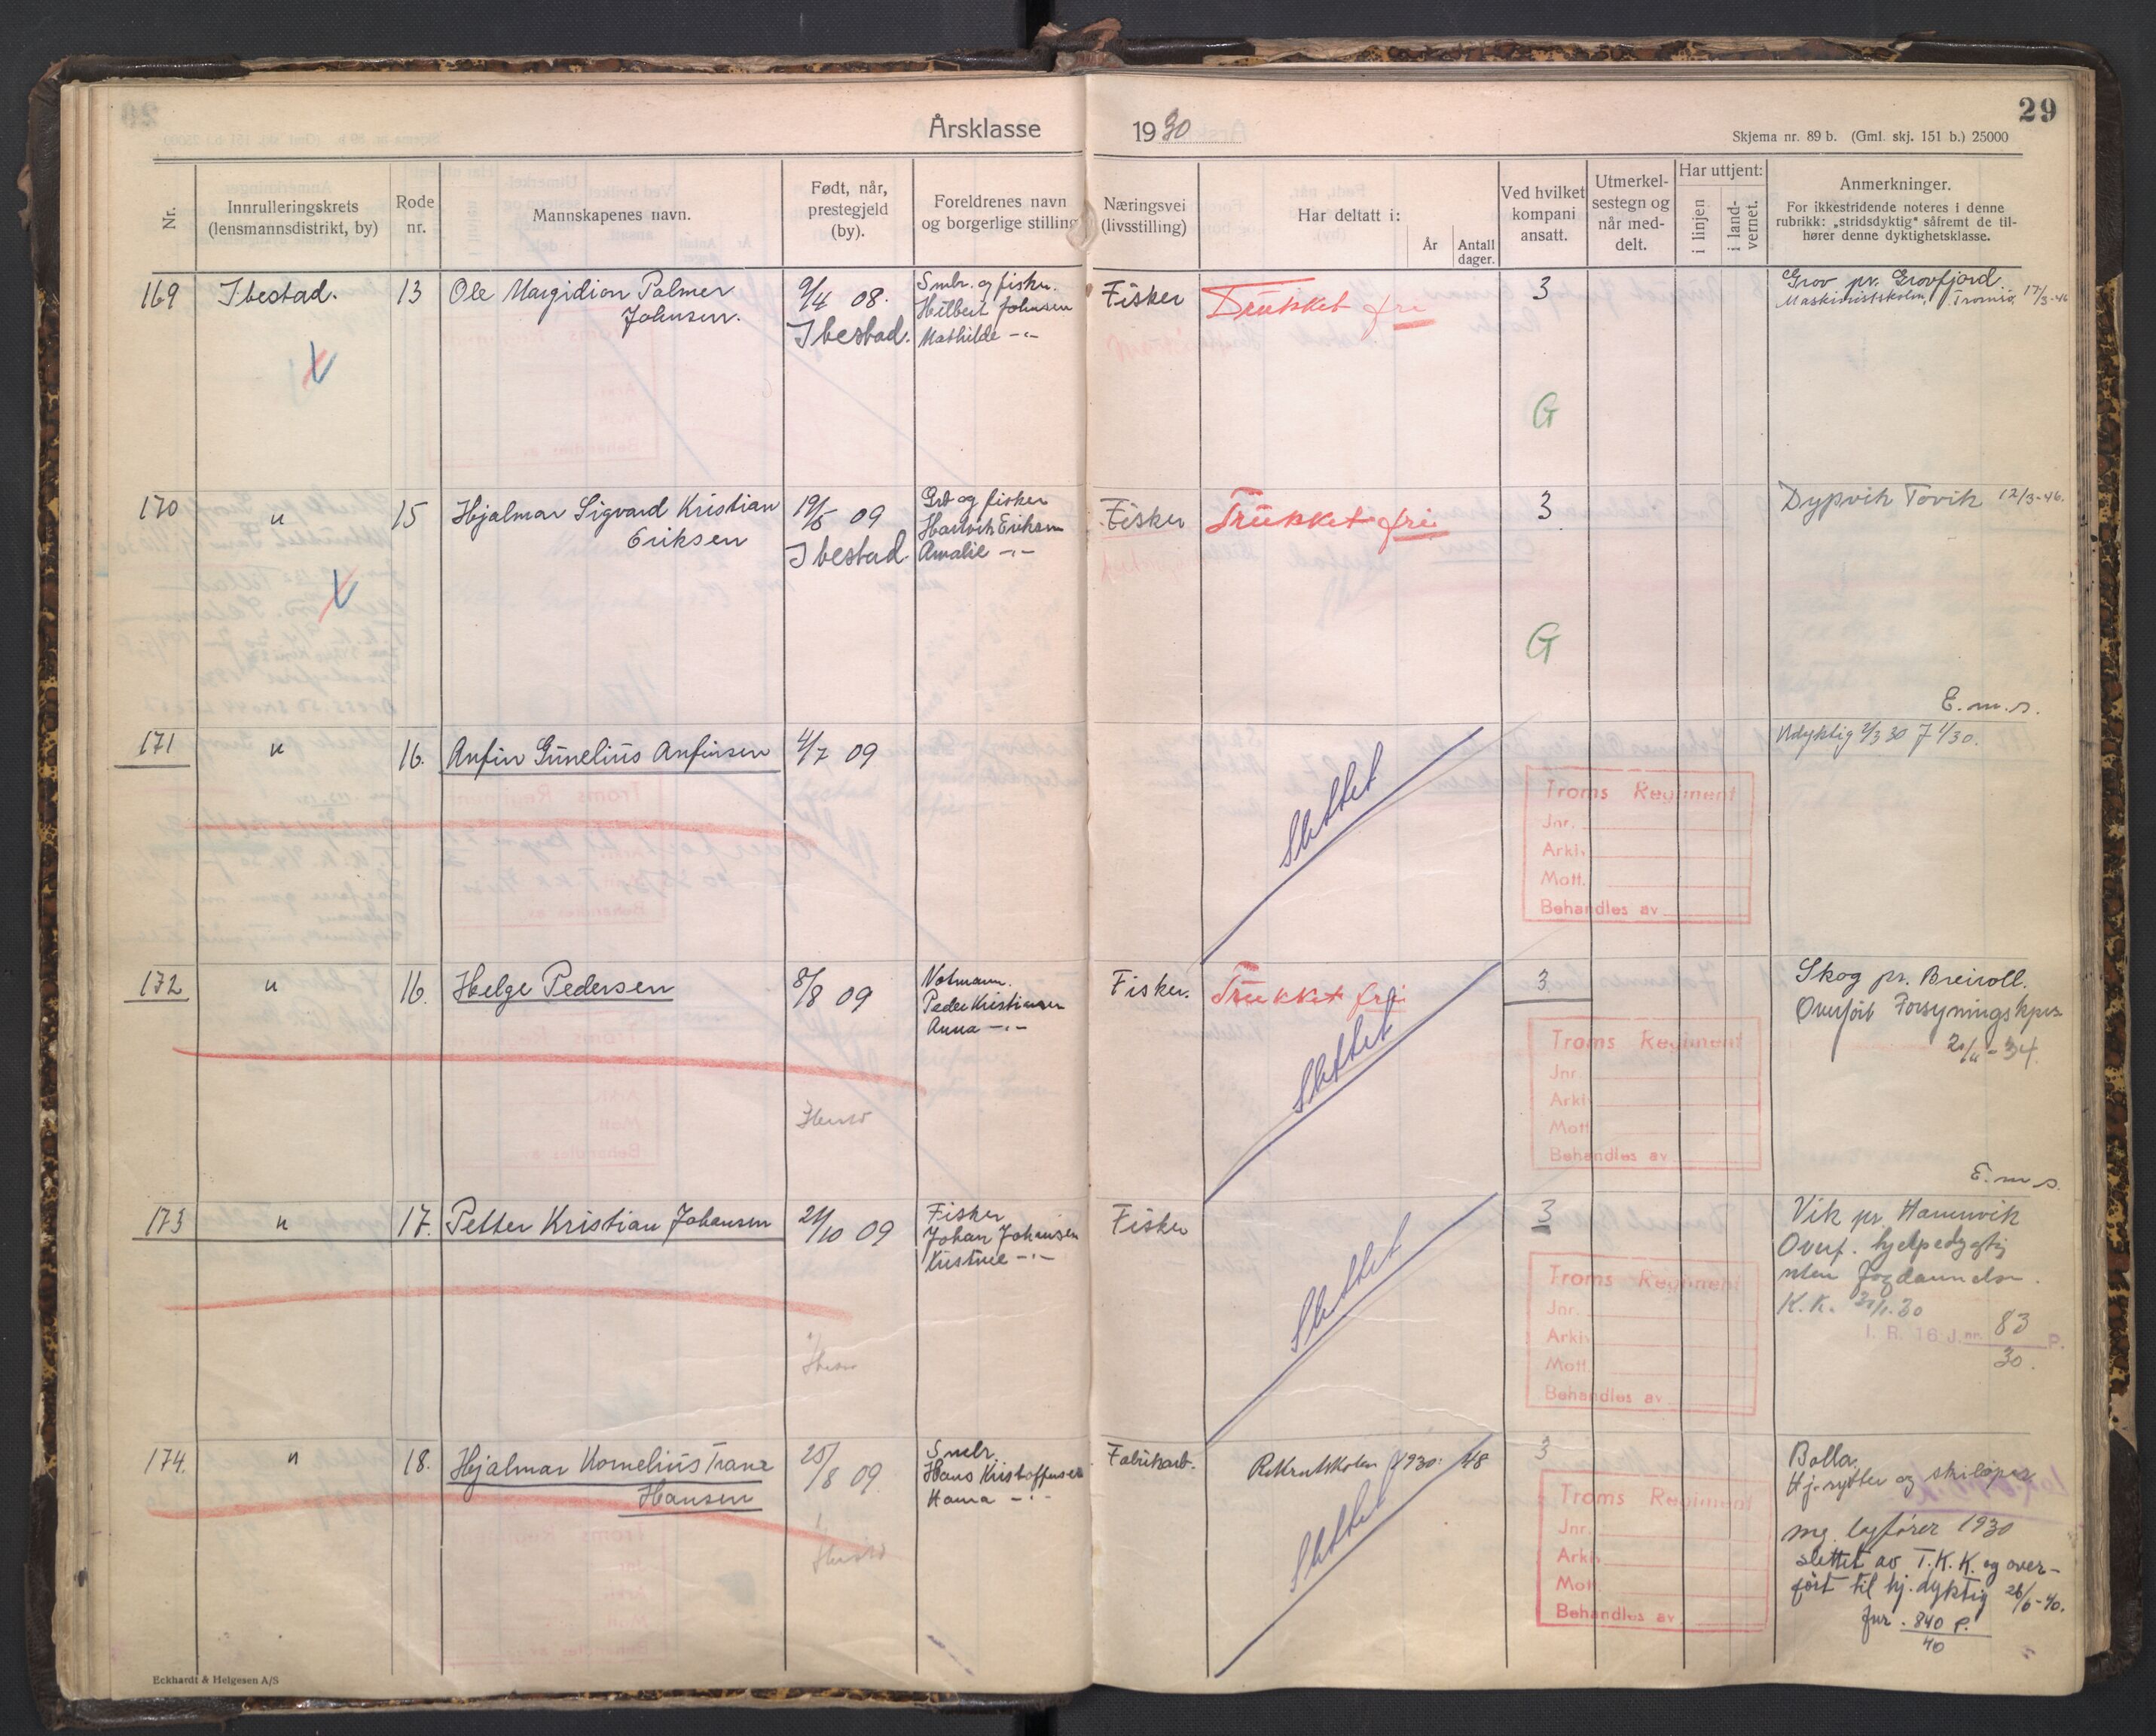 Årsklasse 1930
29
Skjema nr. 89 b. (Gml. skj. 151 b.) 25000
Nr.
Innrulleringskrets
(lensmannsdistrikt, by)
Rode
nr.
Mannskapenes navn.
Født, når,
prestegjeld
(by).
Foreldrenes navn
og borgerlige stilling
Næringsvei
(livsstilling)
Har deltatt i:
År
Antall
dager.
Ved hvilket
kompani
ansatt.
Utmerkel-
sestegn og
når med-
delt.
Har uttjent:
i linjen
i land-
vernet.
Anmerkninger.
For ikkestridende noteres i denne
rubrikk: „stridsdyktig" såfremt de til-
hører denne dyktighetsklasse.
169 Ibestad. 13 Ole Margidion Palmer
Johnsen.
9/4 08.
Ibestad.
Smbr. og fisker.
Hilbert Johnsen
Mathilde -"-
Fisker
Trukket fri
3
G
Grov pr. Grovfjord
Maskinistskolen, Tromsø, 17/3-46
170 " 15 Hjalmar Sigvard Kristian
Eriksen
19/5 09
Ibestad.
Grb og fisker
Hartvik Eriksen
Amalie -"-
Fisker
Trukket fri
3
G
Dypvik Tovik 12/3-46.
E.m.s.
171 " 16. Anfin Gunelius Anfinsen
4/7 09
Slettet
Udyktig 2/3 30
Troms Regiment
Jnr.
Arkiv
Mott.
Behandles av
172 " 16. Helge Pedersen
8/8 09
Notmann.
Peder Kristiansen
Anna -"-
Fisker.
Trukket fri
Slettet
3
Troms Regiment
Jnr.
Arkiv
Mott.
Behandles av
Skog pr. Breivoll.
Overført Forsyningskpn
2/11-34.
E.m.s.
173 " 17. Petter Kristian Johansen
21/10 09
Fisker
Johan Johansen
Kristine -"-
Fisker
Slettet
3
Troms Regiment
Jnr.
Arkiv
Mott.
Behandles av
Vik pr. Hamnvik
Overf. hjelpedygtig
uten
K.K. 31/1.30
I. R. 16 J.nr. 83 P.
30.
174. " 18. Hjalmar Kornelius Trane
Hansen
25/8 09.
Smbr.
Hans Kristoffersen
Hanna -"-
Fabrikarb.
Rekrutskolen 1930. 48
Slettet
3
Troms Regiment
Jnr.
Arkiv
Mott.
Behandles av
Bolla.
Hj.rytter og skiløper
mg. lagfører 1930
slettet av T.K.K. og over-
ført til hj.dyktig 26/6-40.
Jnr. 840 P.
40
Eckhardt & Helgesen A/S